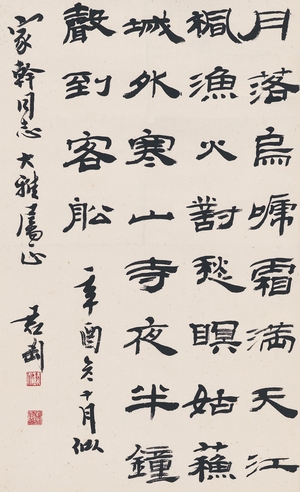 月落烏啼霜滿天江
楓漁火對愁瞑姑蘇
城外寒山寺夜半鐘
聲到客舩
辛酉冬十月似
家幹同志大雅屬正
君匋